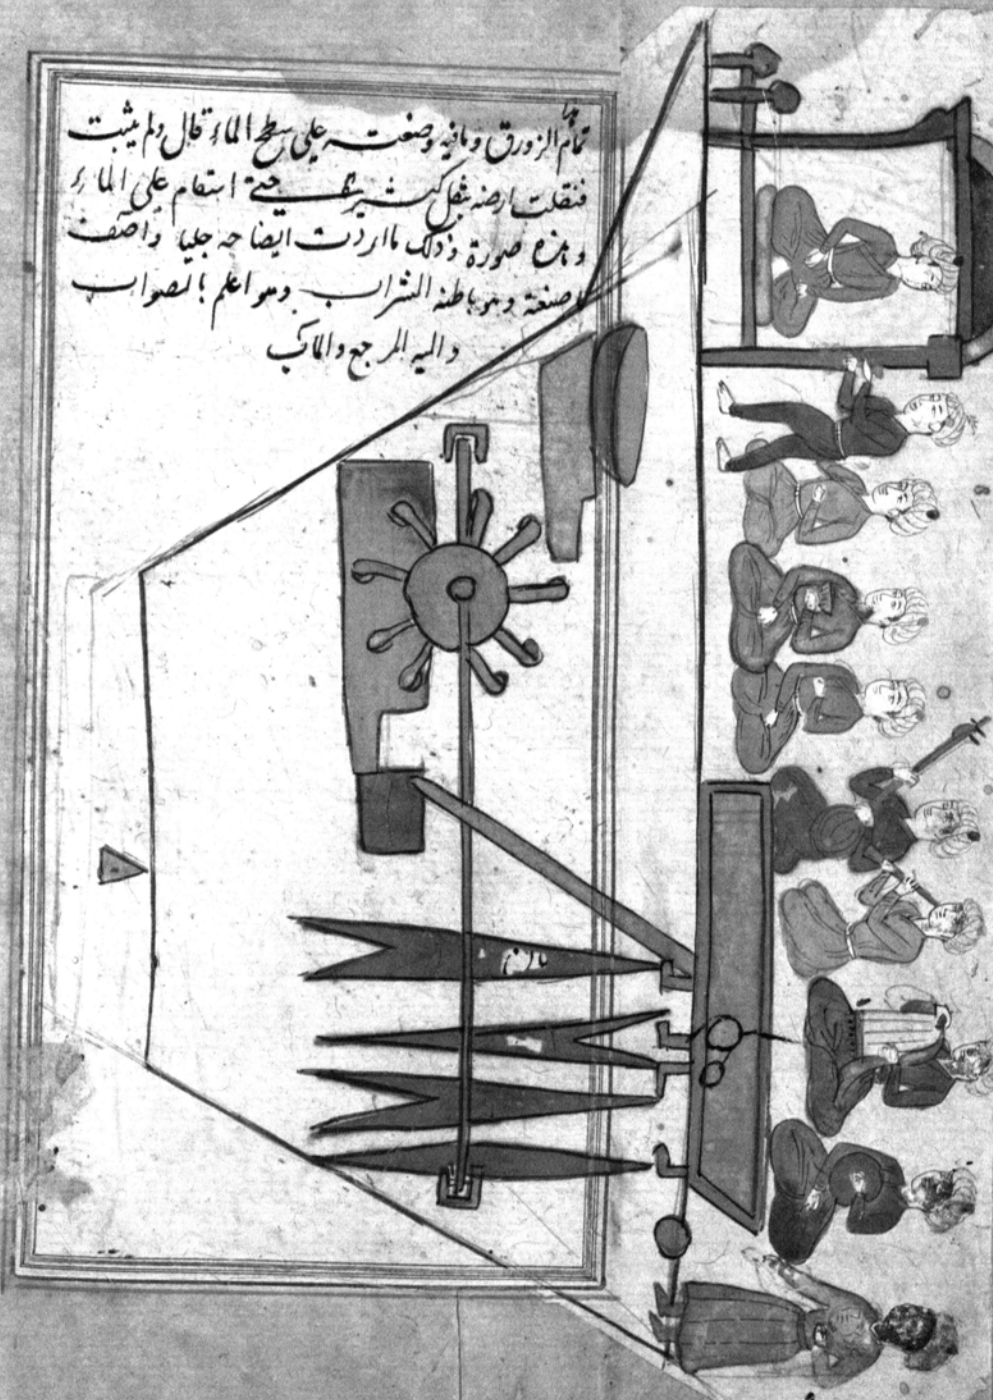 تمام الزورق وما فيه وصنعت على سطح الماء قال ولم يثبت
فثقلت ارضه بثقل كثير حتى استقام على الماء
وهذه صورة ذلك ما اردت ايضاحه جليا واصف
صنعة وهو باطنه الشراب وهو اعلم بالصواب
واليه المرجع والمآب